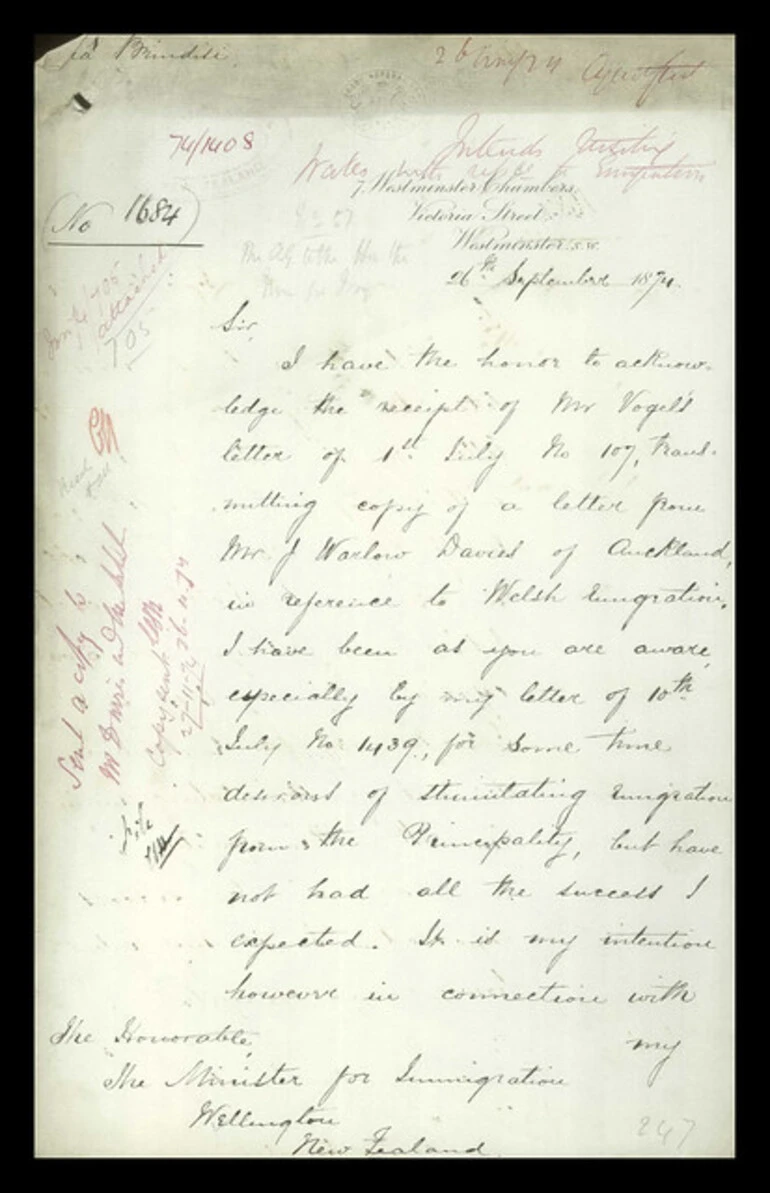 Brindisi
74/1408
Intends visiting
Wales with to Emigration
7, Westminster Chambers,
Victoria Street,
Westminster S.W.
(No 1684)
26th September 1874
Sir,
I have the honor to acknow-
ledge the receipt of Mr Vogel's
letter of 1st July No 107, trans-
mitting copy of a letter from
Mr J Warlow Davies of Auckland,
in reference to Welsh Emigration.
I have been as you are aware,
especially by my letter of 10th
July No 1439, for some time
desirous of stimulating Emigration
from the Principality, but have
not had all the success I
expected. It is my intention
however in connection with
my
The Honorable,
The Minister for Immigration
Wellington
New Zealand
attached
705
Sent a copy to
Mr Davies
Copy sent
27-11-74
file
247